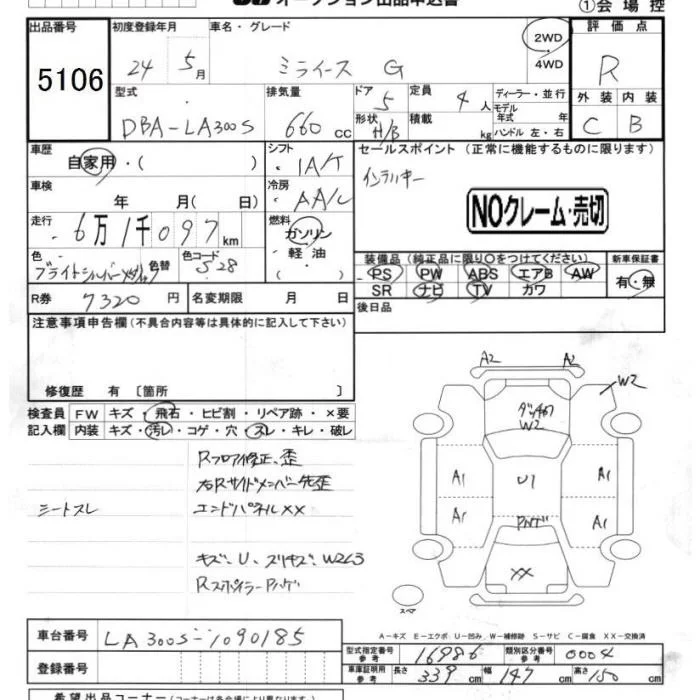 オークション出品申込書
①会場控
出品番号 初度登録年月 車名・グレード 評価点
5106 24 5月 ミライース G 2WD ・ 4WD R
型式 排気量 ドア 定員 ディーラー・並行 外装 内装
DBA-LA300S 660 cc 5 4人 モデル年式 年 C B
形状 H/B 積載 kg ハンドル 左・右
車歴 シフト セールスポイント (正常に機能するものに限ります)
自家用・( ) IA/T インテリキー
車検 冷房
年 月( 日) AA/C NOクレーム・売切
走行 燃料
6万1千097km ガソリン
色 色替 色コード ・軽油 装備品 (純正品に限り○をつけてください) 新車保証書
S28 ・( ) PS PW ABS エアB AW 有・無
R券 7320円 名変期限 月 日 SR ナビ TV カワ
注意事項申告欄(不具合内容等は具体的に記入して下さい) 後日品
修復歴 有 〔箇所 〕
検査員 FW キズ・飛石・ヒビ割・リペア跡・×要
記入欄 内装 キズ・汚レ・コゲ・穴・スレ・キレ・破レ
A2 A2
W2
W2
Rフロア修正、歪
右Rサイドメンバー先歪
シートスレ エンドパネルXX
A1 U1 A1
A1 A1
キズ、U、スリキズ、W2L3
XX
スペア
A-キズ E-エクボ U-凹み W-補修跡 S-サビ C-腐食 XX-交換済
車台番号 LA300S-1090185
型式指定番号 参考 16986 類別区分番号 参考 0004
登録番号 車庫証明用 参考 長さ 339cm 幅 147cm 高さ 150cm
希望出品コーナー(コーナーは各会場により異なります)